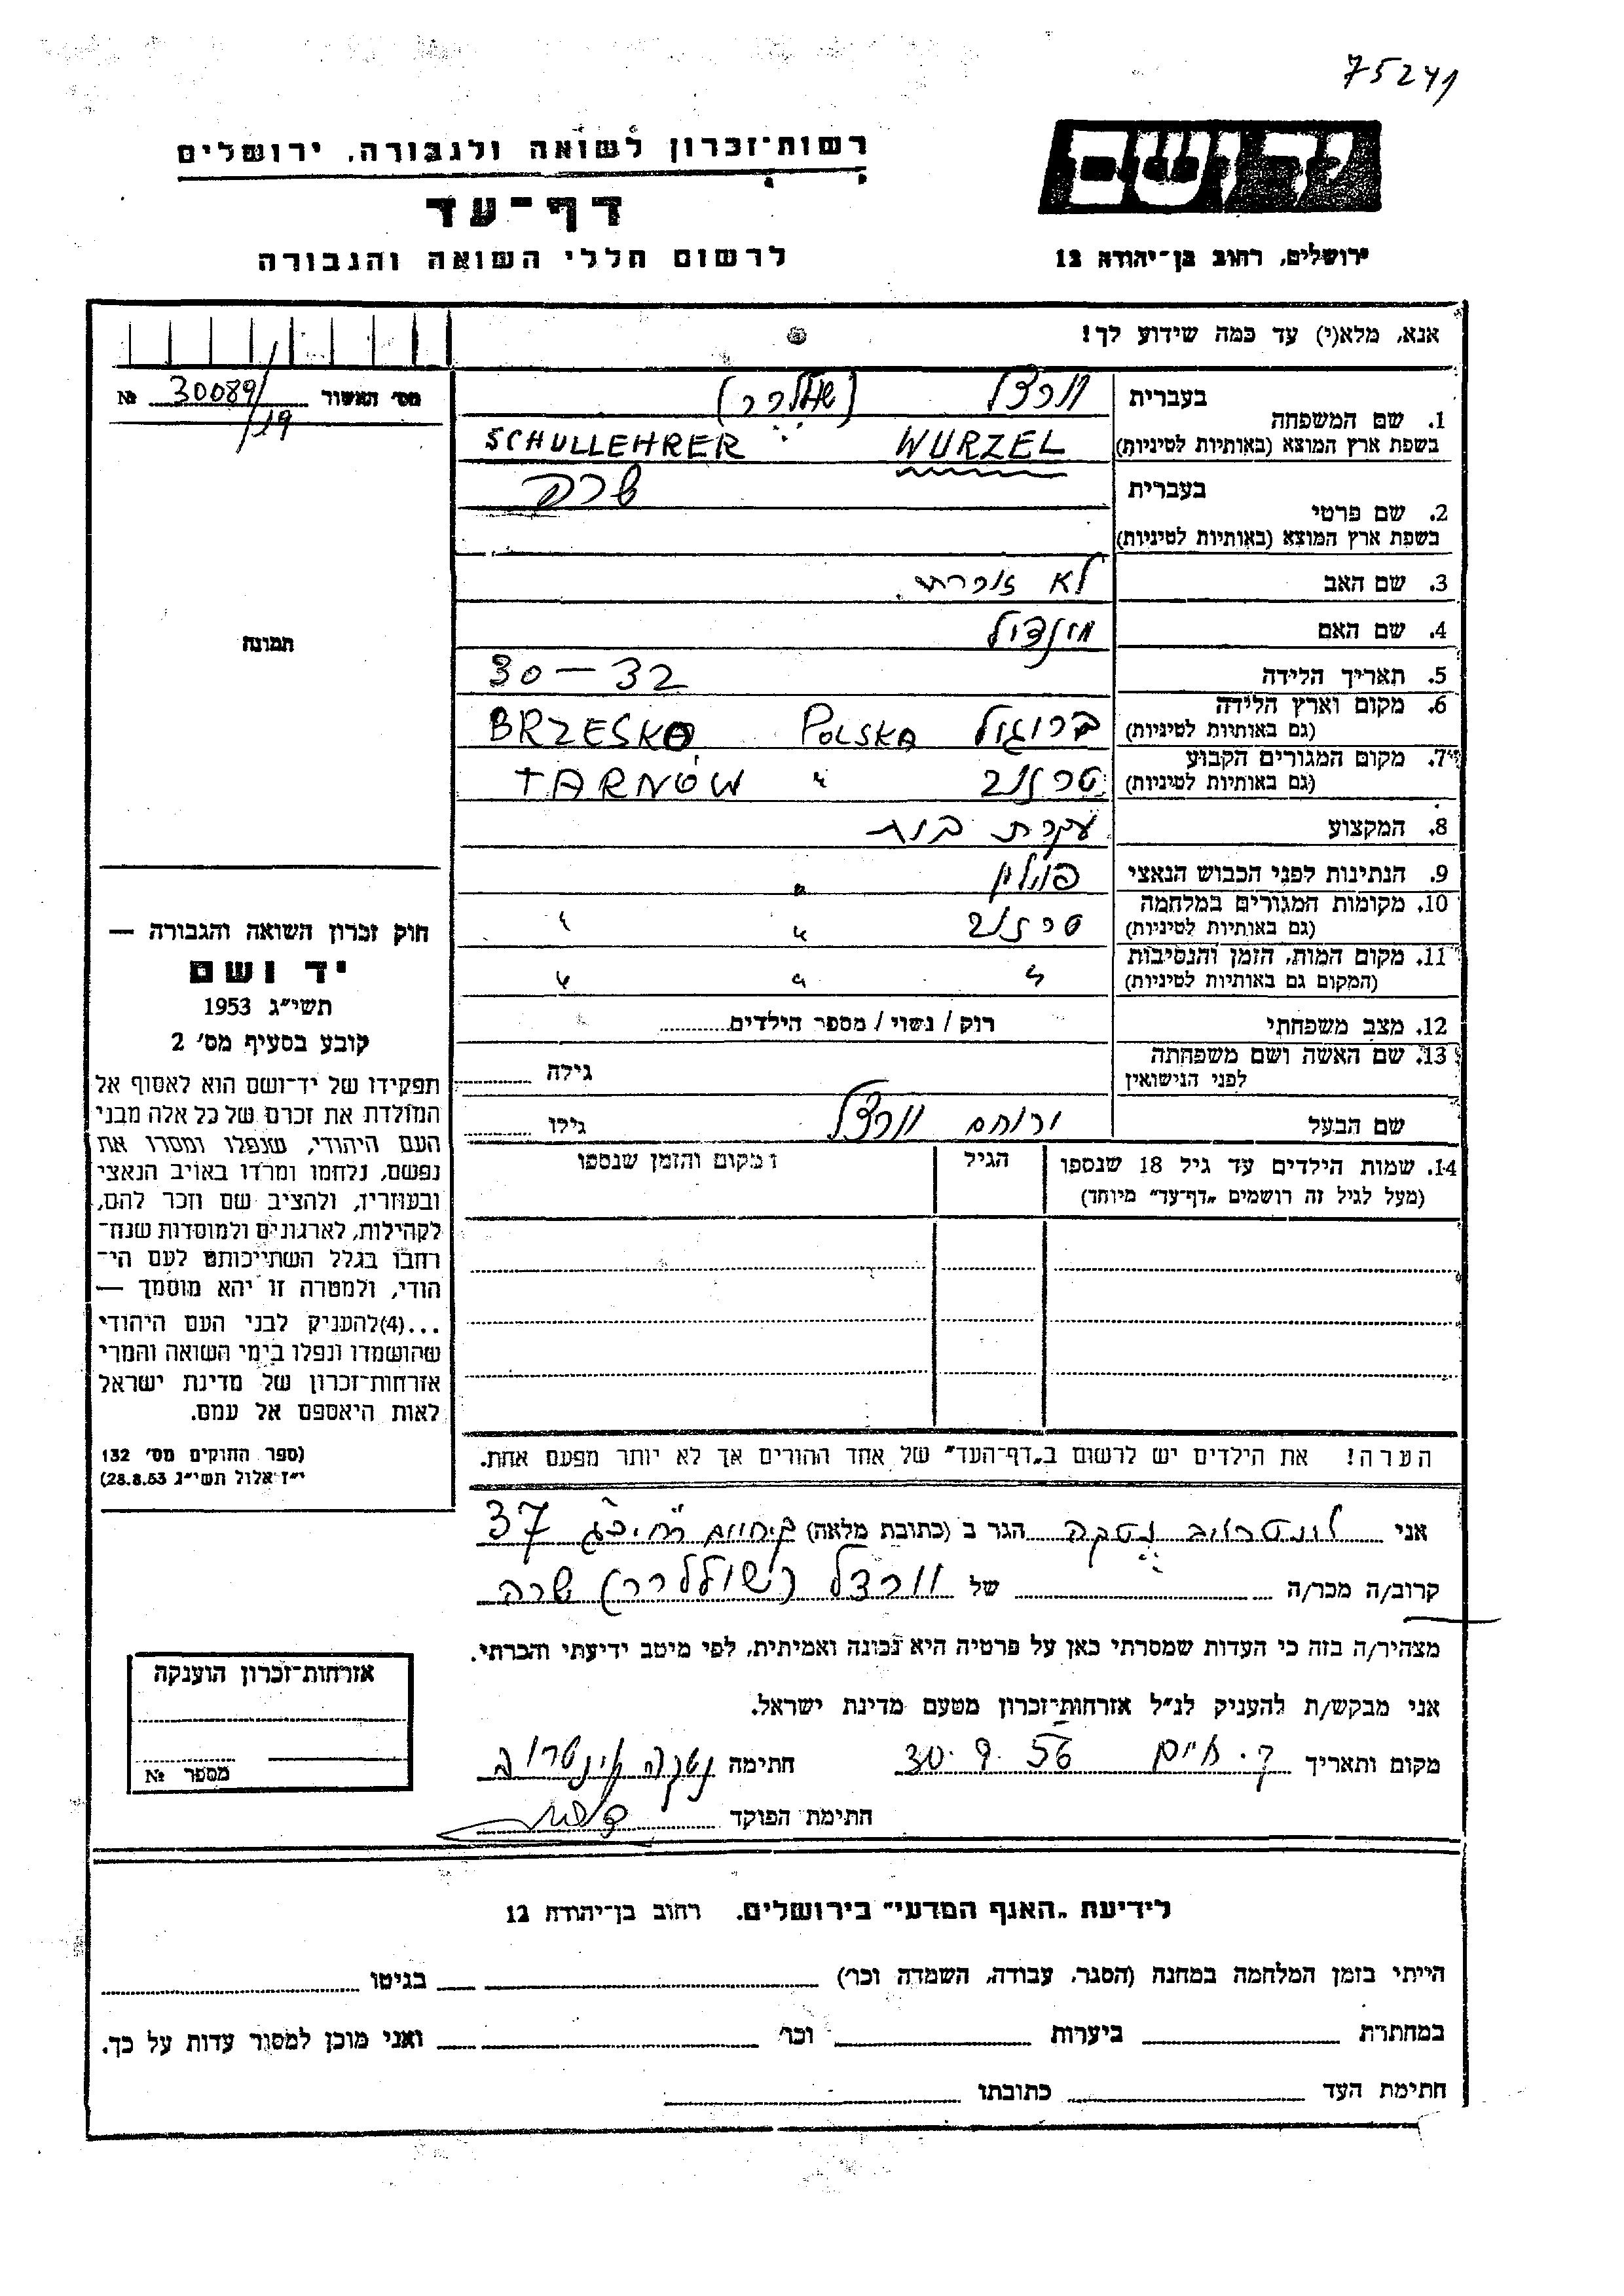 75241
רשות־זכרון לשואה ולגבורה, ירושלים
יד ושם
דף־עד
לרשום חללי השואה והגבורה
ירושלים, רחוב בן־יהודה 12
אנא, מלא(י) עד כמה שידוע לך!
מס' האשור 30089/ №
/19
1. שם המשפחה
בעברית וורצל (שוללרר)
בשפת ארץ המוצא (באותיות לטיניות) WURZEL SCHULLEHRER
2. שם פרטי
בעברית שרה
בשפת ארץ המוצא (באותיות לטיניות)
3. שם האב לא זוכרת.
4. שם האם
תמונה
5. תאריך הלידה 30 – 32
6. מקום וארץ הלידה (גם באותיות לטיניות) POLSKA BRZESKO
7. מקום המגורים הקבוע (גם באותיות לטיניות) טרנוב " TARNÓW
8. המקצוע עקרת בית
9. הנתינות לפני הכבוש הנאצי פולין "
10. מקומות המגורים במלחמה (גם באותיות לטיניות) טרנוב " "
11. מקום המות, הזמן והנסיבות (המקום גם באותיות לטיניות) " " "
12. מצב משפחתי רוק / נשוי / מספר הילדים
13. שם האשה ושם משפחתה לפני הנישואין גילה
שם הבעל ירוחם וורצל גילו
14. שמות הילדים עד גיל 18 שנספו (מעל לגיל זה רושמים „דף־עד" מיוחד)
הגיל
המקום והזמן שנספו
הערה! את הילדים יש לרשום ב„דף־העד" של אחד ההורים אך לא יותר מפעם אחת.
חוק זכרון השואה והגבורה —
יד ושם
תשי"ג 1953
קובע בסעיף מס' 2
תפקידו של יד־ושם הוא לאסוף אל
המולדת את זכרם של כל אלה מבני
העם היהודי, שנפלו ומסרו את
נפשם, נלחמו ומרדו באויב הנאצי
ובעוזריו, ולהציב שם וזכר להם,
לקהילות, לארגונים ולמוסדות שנח־
רבו בגלל השתייכותם לעם הי־
הודי, ולמטרה זו יהא מוסמך —
...(4) להעניק לבני העם היהודי
שהושמדו ונפלו בימי השואה והמרי
אזרחות־זכרון של מדינת ישראל
לאות היאספם אל עמם.
(ספר החוקים מס' 132
י"ז אלול תשי"ג 28.8.53)
אני נטקה הגר ב (כתובת מלאה) 37
קרוב/ה מכר/ה של וורצל (שוללרר) שרה
מצהיר/ה בזה כי העדות שמסרתי כאן על פרטיה היא נכונה ואמיתית, לפי מיטב ידיעתי והכרתי.
אני מבקש/ת להעניק לנ"ל אזרחות־זכרון מטעם מדינת ישראל.
מקום ותאריך ק. חיים 30.9.56 חתימה נטקה
חתימת הפוקד
אזרחות־זכרון הוענקה
מספר №
לידיעת „האגף המדעי" בירושלים, רחוב בן־יהודה 12
הייתי בזמן המלחמה במחנה (הסגר, עבודה, השמדה וכר') בגיטו
במחתרת ביערות וכר' ואני מוכן למסור עדות על כך.
חתימת העד כתובתו